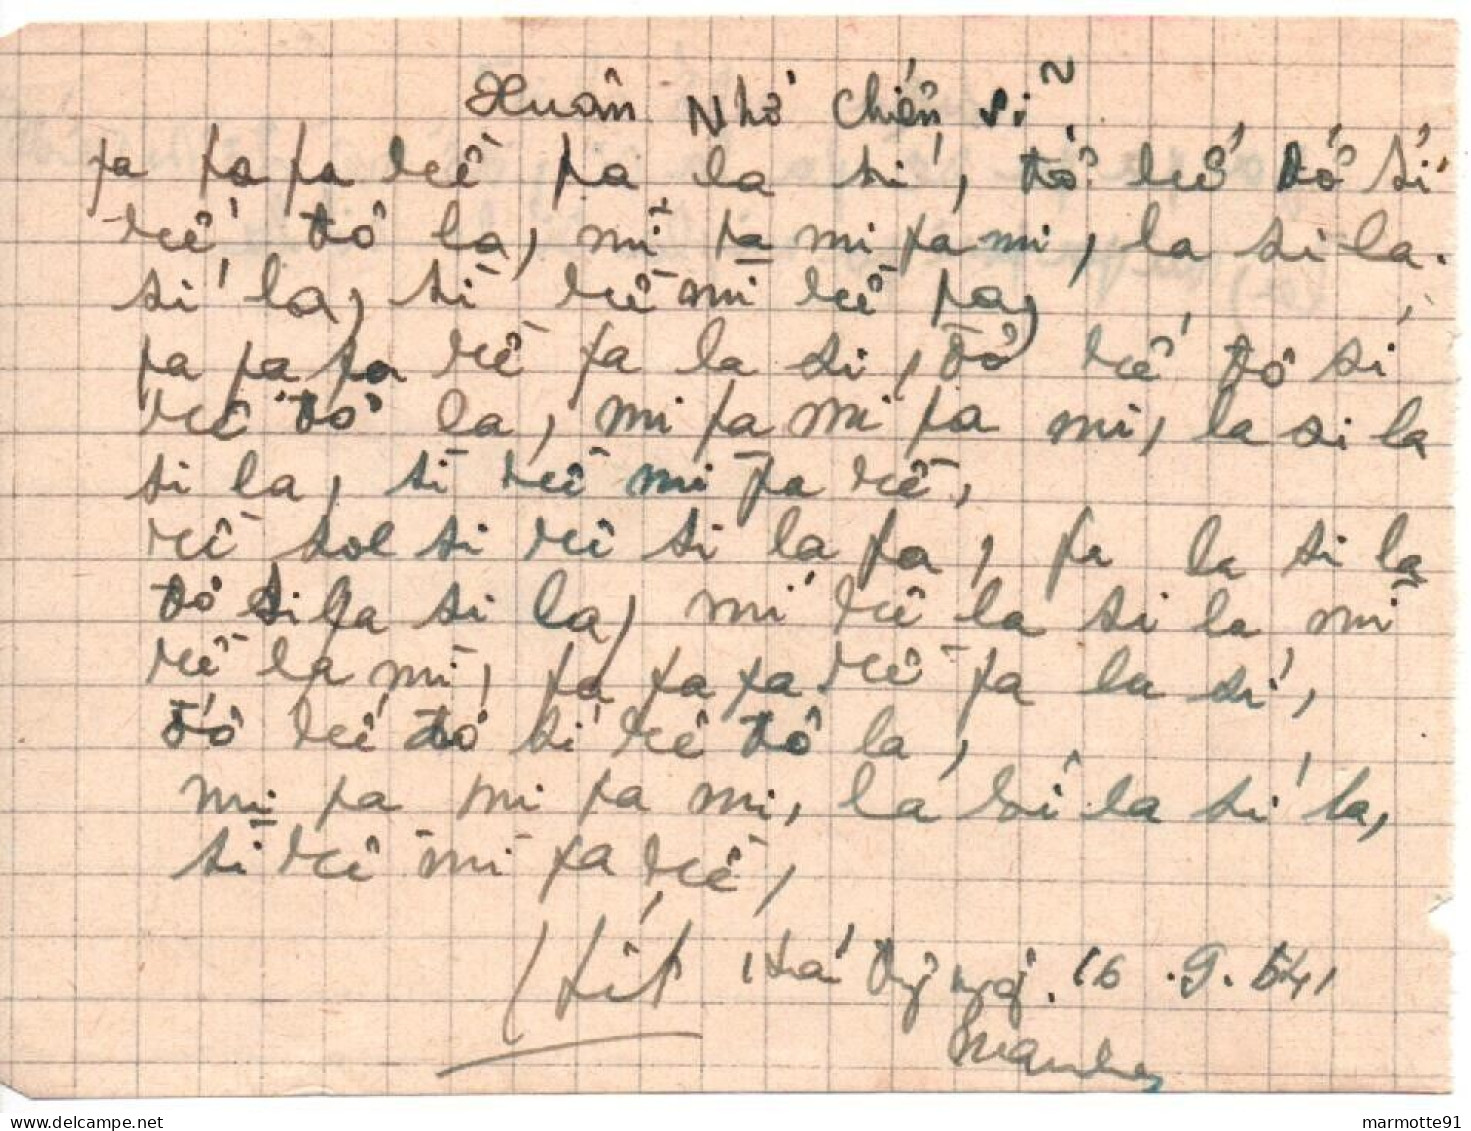 Xuân Nhớ chiến sĩ
fa fa fa rê fa la si, đô rê đô si
rê đô la, mi fa mi fa mi, la si la
si la, si rê mi rê fa,
fa fa fa rê fa la si, đô rê đô si
rê đô la, mi fa mi fa mi, la si la
si la, si rê mi fa rê,
rê sol si rê si la fa, fa la si la
đô si la si la, mi rê la si la mi
rê la mi, fa fa fa rê fa la si,
đô rê đô si rê đô la,
mi fa mi fa mi, la si la si la,
si rê mi fa rê,
16.9.54
marmotte91